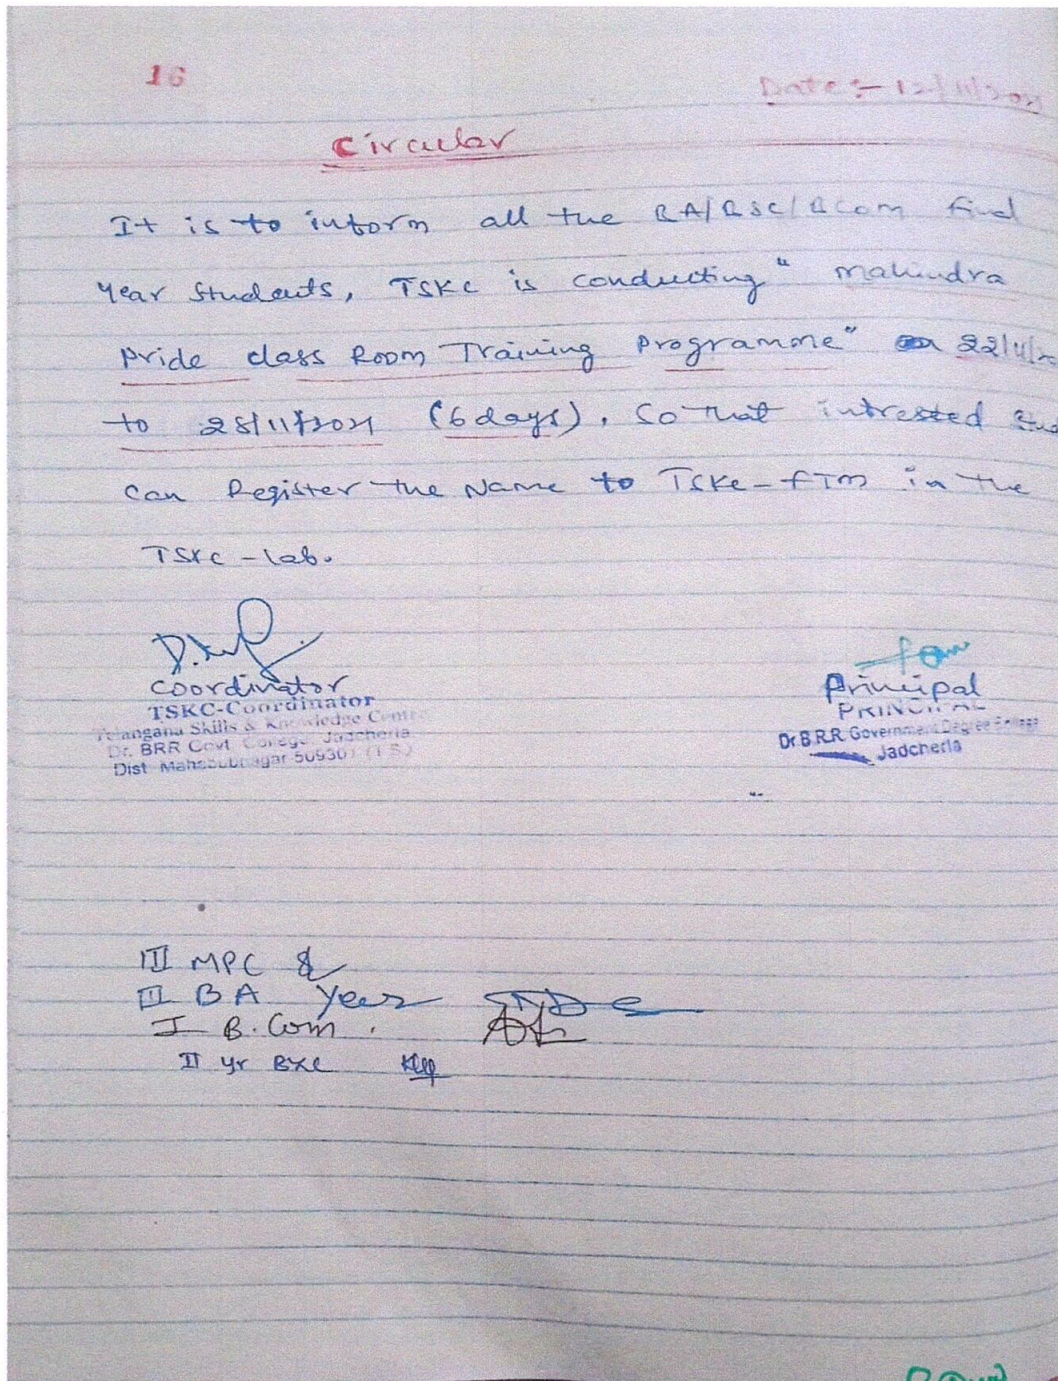 16
Date :- 12/11/2021
Circular
It is to inform all the BA/BSC/BCom final
year students, TSKC is conducting " Mahindra
Pride class Room Training Programme" on 22/11/2
to 28/11/2021 (6 days), So that intrested Stud
can Register the Name to TSKC-FTM in the
TSKC - lab.
Coordinator
TSKC-Coordinator
Telangana Skills & Knowledge Centre
Dr. BRR Govt. College Jadcherla
Dist Mahabubnagar-509301 (T.S.)
Principal
PRINCIPAL
Dr.B.R.R. Government Degree College
Jadcherla
III MPC
III BA Year
I B.Com.
II yr BXC